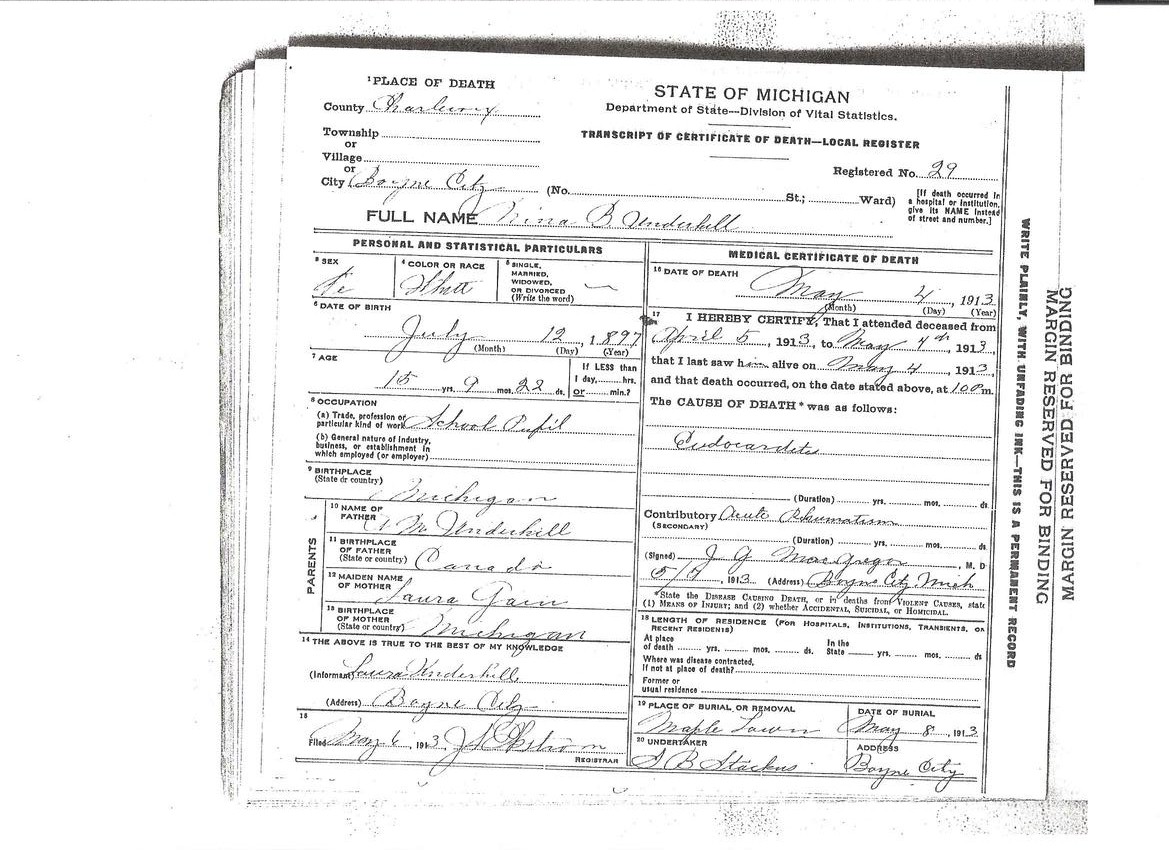 ¹PLACE OF DEATH
County Charlevoix
Township
or
Village
or
City Boyne City (No. St.; Ward)
STATE OF MICHIGAN
Department of State—Division of Vital Statistics.
TRANSCRIPT OF CERTIFICATE OF DEATH—LOCAL REGISTER
Registered No. 29
[If death occurred in a hospital or institution, give its NAME instead of street and number.]
FULL NAME Nina B Underhill
PERSONAL AND STATISTICAL PARTICULARS
³ SEX
Fe
⁴ COLOR OR RACE
White
⁵ SINGLE, MARRIED, WIDOWED, OR DIVORCED (Write the word)
—
⁶ DATE OF BIRTH
July 12, 1897
(Month) (Day) (Year)
⁷ AGE
15 yrs. 9 mos. 22 ds.
If LESS than 1 day, hrs. or min.?
⁸ OCCUPATION
(a) Trade, profession or particular kind of work School Pupil
(b) General nature of industry, business, or establishment in which employed (or employer)
⁹ BIRTHPLACE
(State or country)
Michigan
PARENTS
¹⁰ NAME OF FATHER M Underhill
¹¹ BIRTHPLACE OF FATHER (State or country) Canada
¹² MAIDEN NAME OF MOTHER Laura
¹³ BIRTHPLACE OF MOTHER (State or country) Michigan
¹⁴ THE ABOVE IS TRUE TO THE BEST OF MY KNOWLEDGE
(Informant) Laura Underhill
(Address) Boyne City
¹⁵
Filed May 6, 1913
REGISTRAR
MEDICAL CERTIFICATE OF DEATH
¹⁶ DATE OF DEATH
May 4, 1913
(Month) (Day) (Year)
¹⁷ I HEREBY CERTIFY, That I attended deceased from
April 5, 1913, to May 4th, 1913,
that I last saw him alive on May 4, 1913,
and that death occurred, on the date stated above, at m.
The CAUSE OF DEATH* was as follows:
Endocarditis
(Duration) yrs. mos. ds
Contributory Acute Rheumatism
(SECONDARY)
(Duration) yrs. mos. ds
(Signed) J G MacGregor, M. D
1913 (Address) Boyne City Mich
*State the DISEASE CAUSING DEATH, or in deaths from VIOLENT CAUSES, state
(1) MEANS OF INJURY; and (2) whether ACCIDENTAL, SUICIDAL, or HOMICIDAL.
¹⁸ LENGTH OF RESIDENCE (FOR HOSPITALS, INSTITUTIONS, TRANSIENTS, OR
RECENT RESIDENTS)
At place of death yrs. mos. ds. In the State yrs. mos. ds
Where was disease contracted,
If not at place of death?
Former or
usual residence
¹⁹ PLACE OF BURIAL OR REMOVAL
Maple Lawn
DATE OF BURIAL
May 8, 1913
²⁰ UNDERTAKER
B
ADDRESS
Boyne City
WRITE PLAINLY, WITH UNFADING INK—THIS IS A PERMANENT RECORD
MARGIN RESERVED FOR BINDING
MARGIN RESERVED FOR BINDING